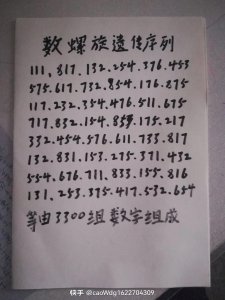 数螺旋遗传序列
111.817.132.254.376.453
575.617.732.854.176.875
117.232.354.476.511.675
717.832.154.859.175.217
332.454.576.611.733.817
132.831.153.275.371.432
554.676.711.833.155.816
131.253.375.417.532.654
等由3300组数字组成
快手 @caoWdg1622704309